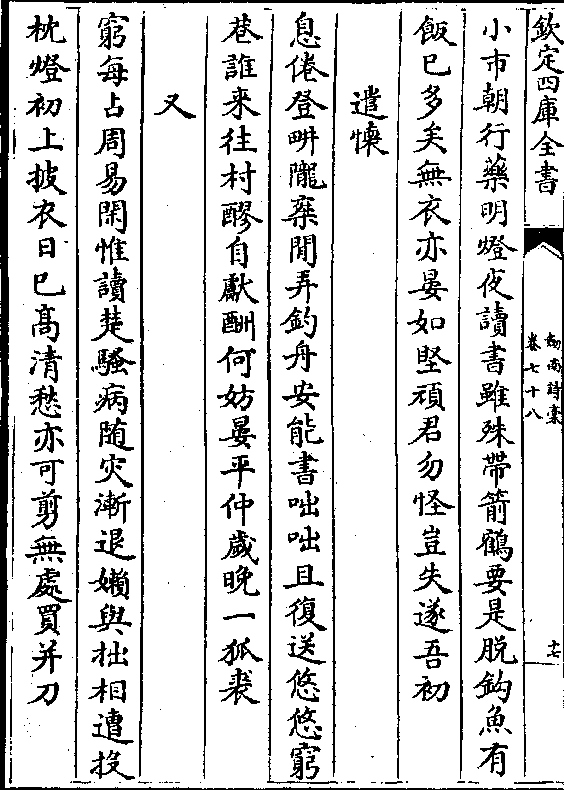 欽定四庫全書
劍南詩稾
卷七十八
十七
小市朝行藥明燈夜讀書雖殊帶箭鶴要是脱鈎魚有
飯已多矣無衣亦晏如堅頑君勿怪豈失遂吾初
遣懷
息倦登畊隴乘閒弄釣舟安能書咄咄且復送悠悠窮
巷誰來往村醪自獻酬何妨晏平仲歲晚一狐裘
又
窮每占周易閑惟讀楚騷病随灾漸退嬾與拙相遭投
枕燈初上披衣日已髙清愁亦可剪無處買并刀